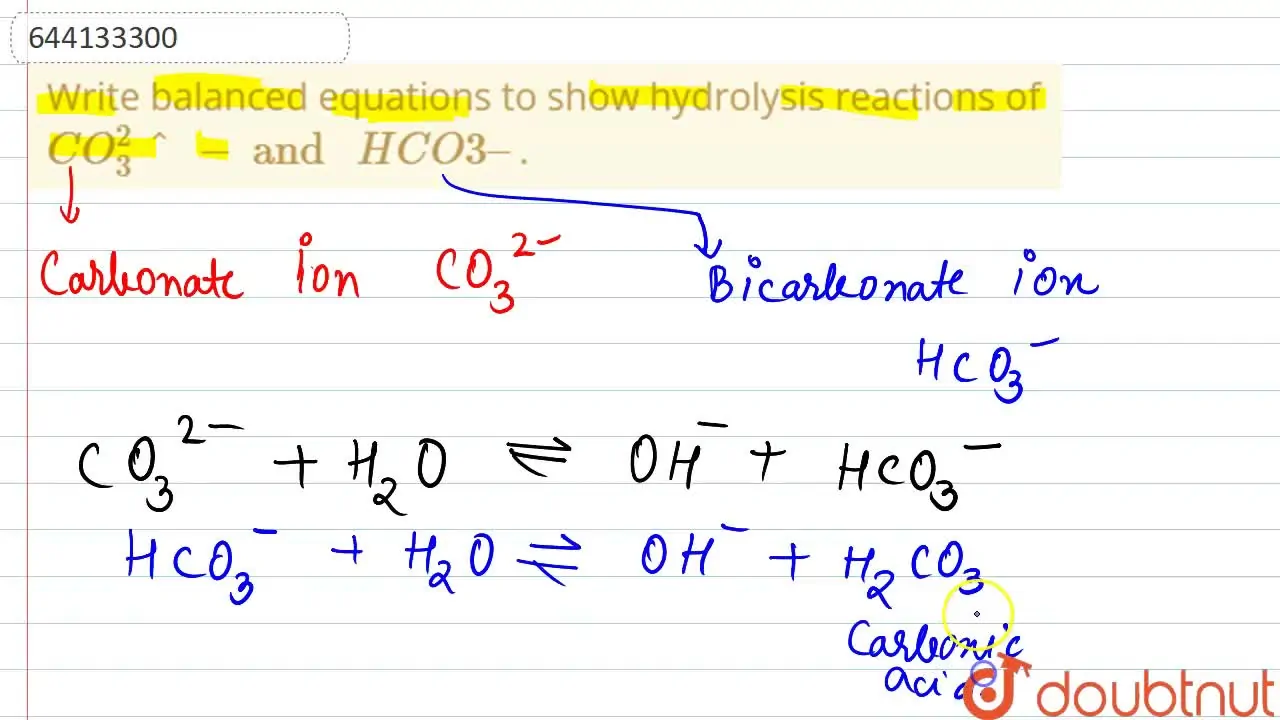 644133300
Write balanced equations to show hydrolysis reactions of
CO₃² ^ − and HCO3–.
Carbonate ion CO₃²⁻
Bicarbonate ion
HCO₃⁻
CO₃²⁻ + H₂O ⇌ OH⁻ + HCO₃⁻
HCO₃⁻ + H₂O ⇌ OH⁻ + H₂CO₃
Carbonic
acid
doubtnut